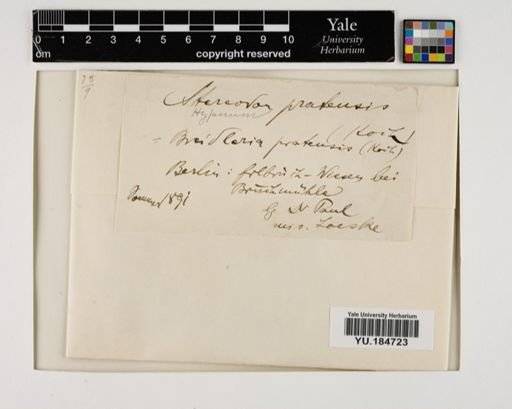 0 1 2 3 4 5 6 7 8 9 10
cm
copyright reserved
Yale
University
Herbarium
28
9
Stereodon pratensis
Hypnum
(Koch)
= Breidleria pratensis (Koch)
Berlin: Erlbruch-Wiesen bei
Bruchmühle
Sommer 1891
lg Dr Paul
mis. Loeske
Yale University Herbarium
YU.184723